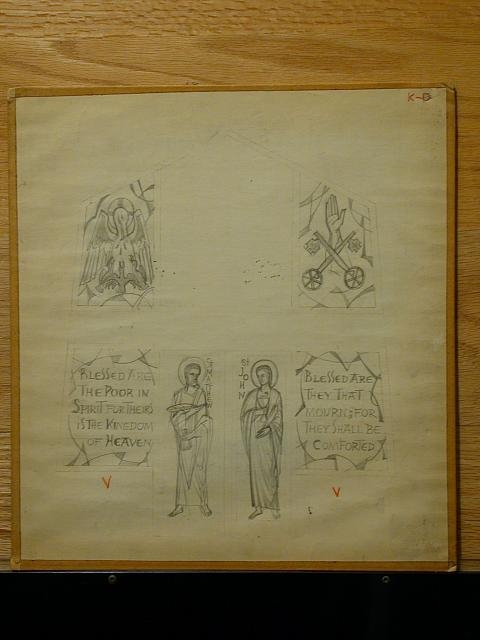 K-D
BLESSED ARE
THE POOR IN
SPIRIT FOR THEIRS
IS THE KINGDOM
OF HEAVEN
ST
JOHN
BLESSED ARE
THEY THAT
MOURN; FOR
THEY SHALL BE
COMFORTED
V
V